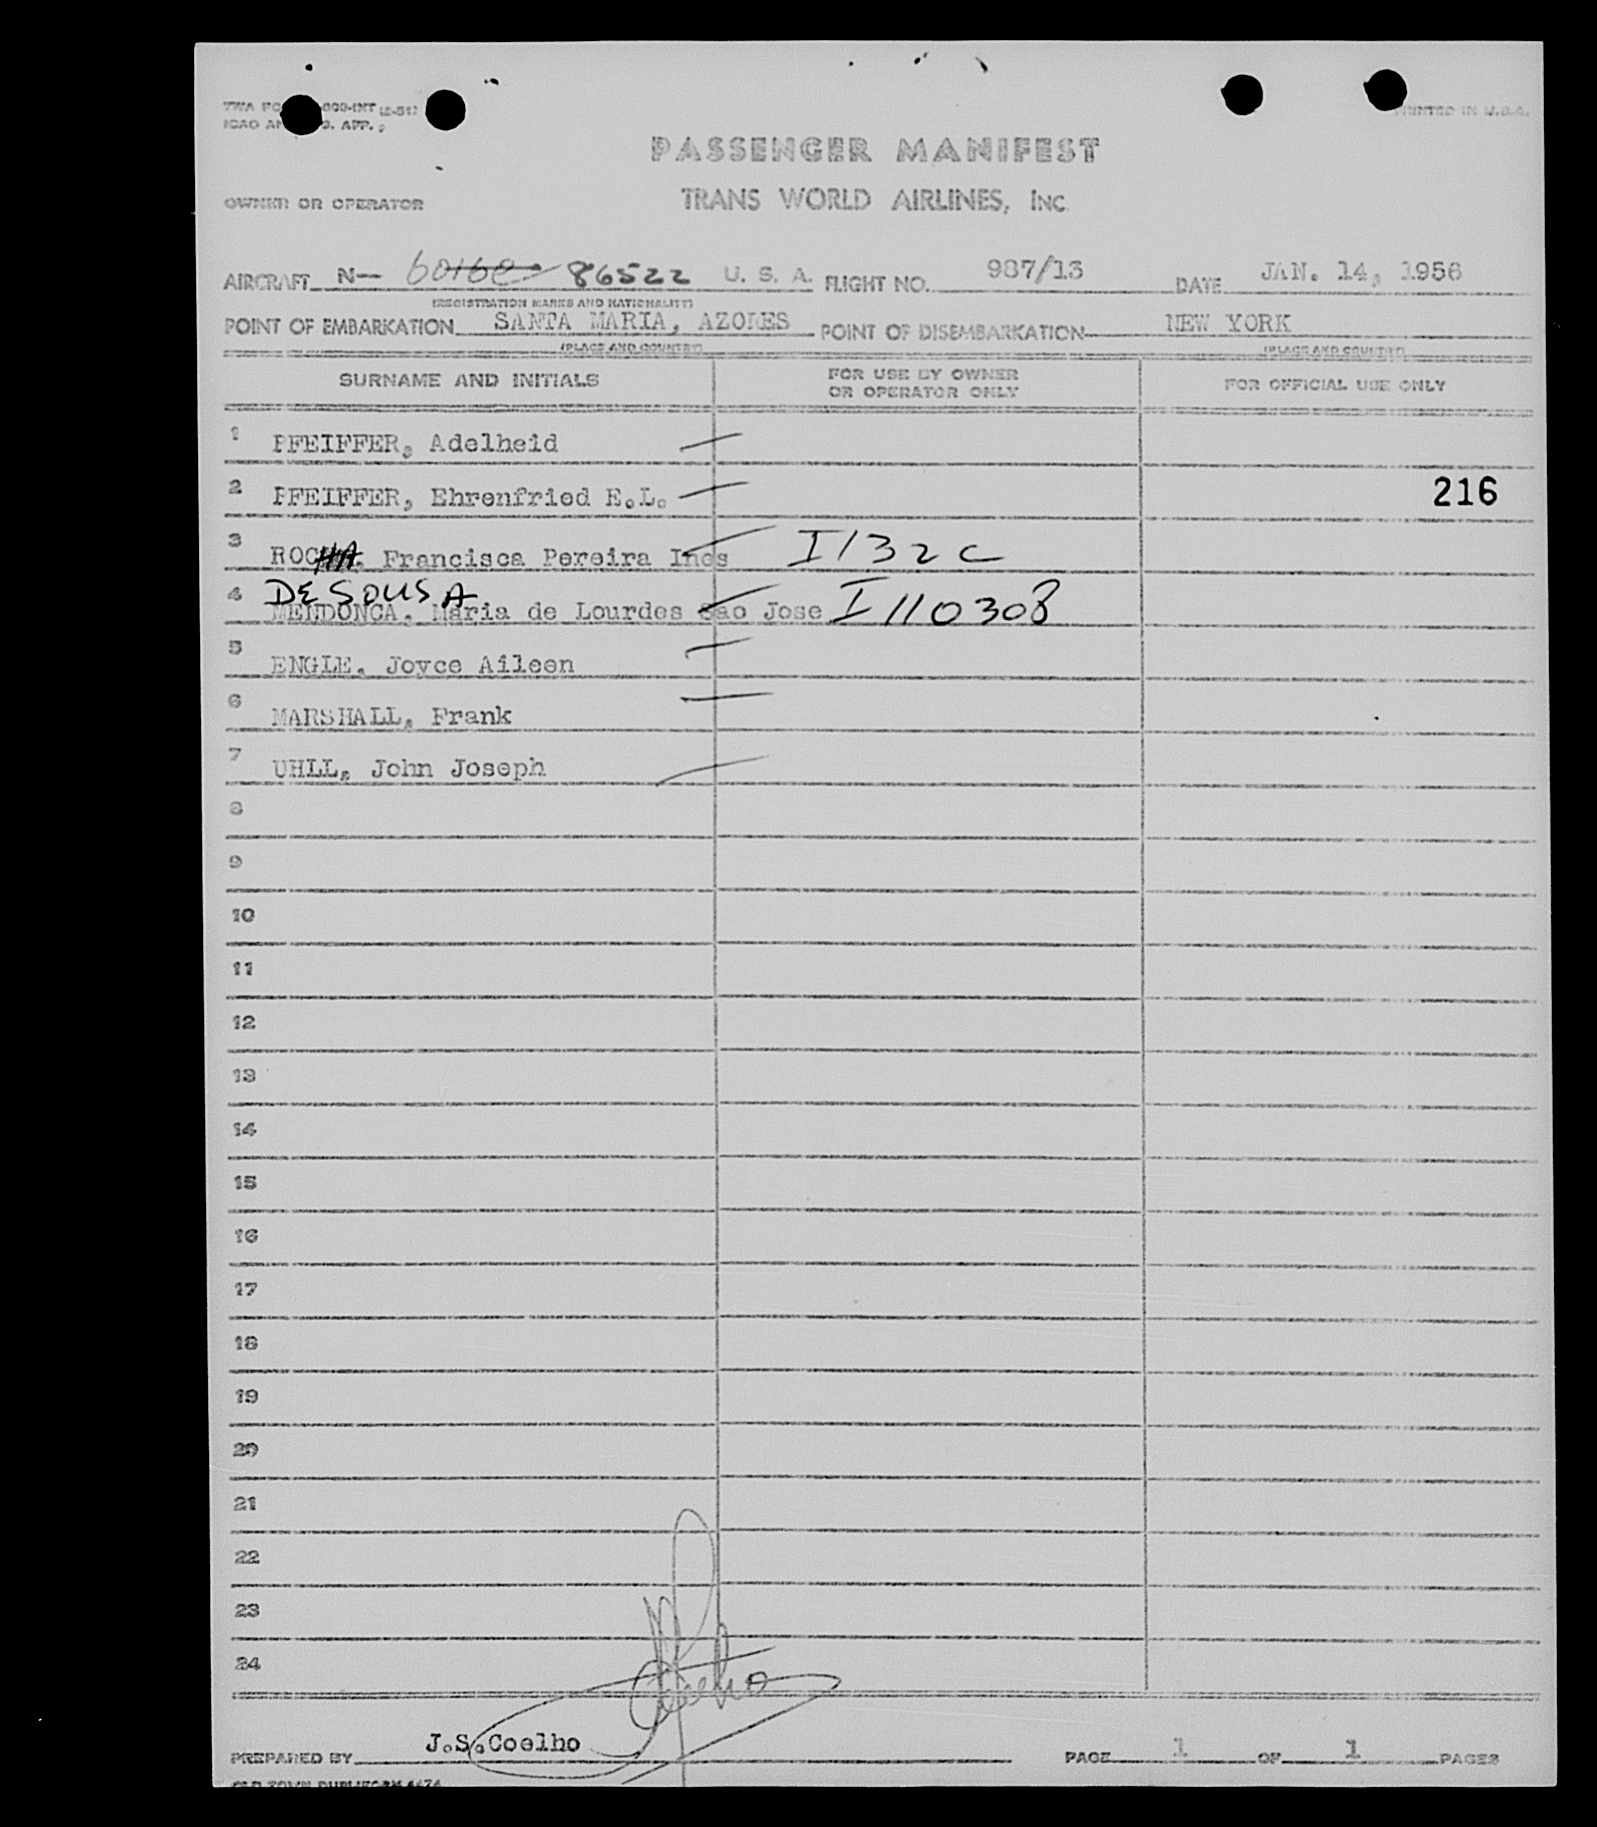 PRINTED IN U.S.A.
PASSENGER MANIFEST
OWNER OR OPERATOR TRANS WORLD AIRLINES, INC.
AIRCRAFT N- 86522 U. S. A. FLIGHT NO. 987/13 DATE JAN. 14, 1956
(REGISTRATION MARKS AND NATIONALITY)
POINT OF EMBARKATION SANTA MARIA, AZORES POINT OF DISEMBARKATION NEW YORK
(PLACE AND COUNTRY) (PLACE AND COUNTRY)
SURNAME AND INITIALS FOR USE BY OWNER OR OPERATOR ONLY FOR OFFICIAL USE ONLY
1 PFEIFFER, Adelheid
2 PFEIFFER, Ehrenfried E.L. 216
3 ROCHA, Francisca Pereira Ines I 132 C
DE SOUSA
4 MENDONCA, Maria de Lourdes Sao Jose I 110308
5 ENGLE, Joyce Aileen
6 MARSHALL, Frank
7 UHLL, John Joseph
8
9
10
11
12
13
14
15
16
17
18
19
20
21
22
23
24
Coelho
PREPARED BY J.S.Coelho PAGE 1 OF 1 PAGES